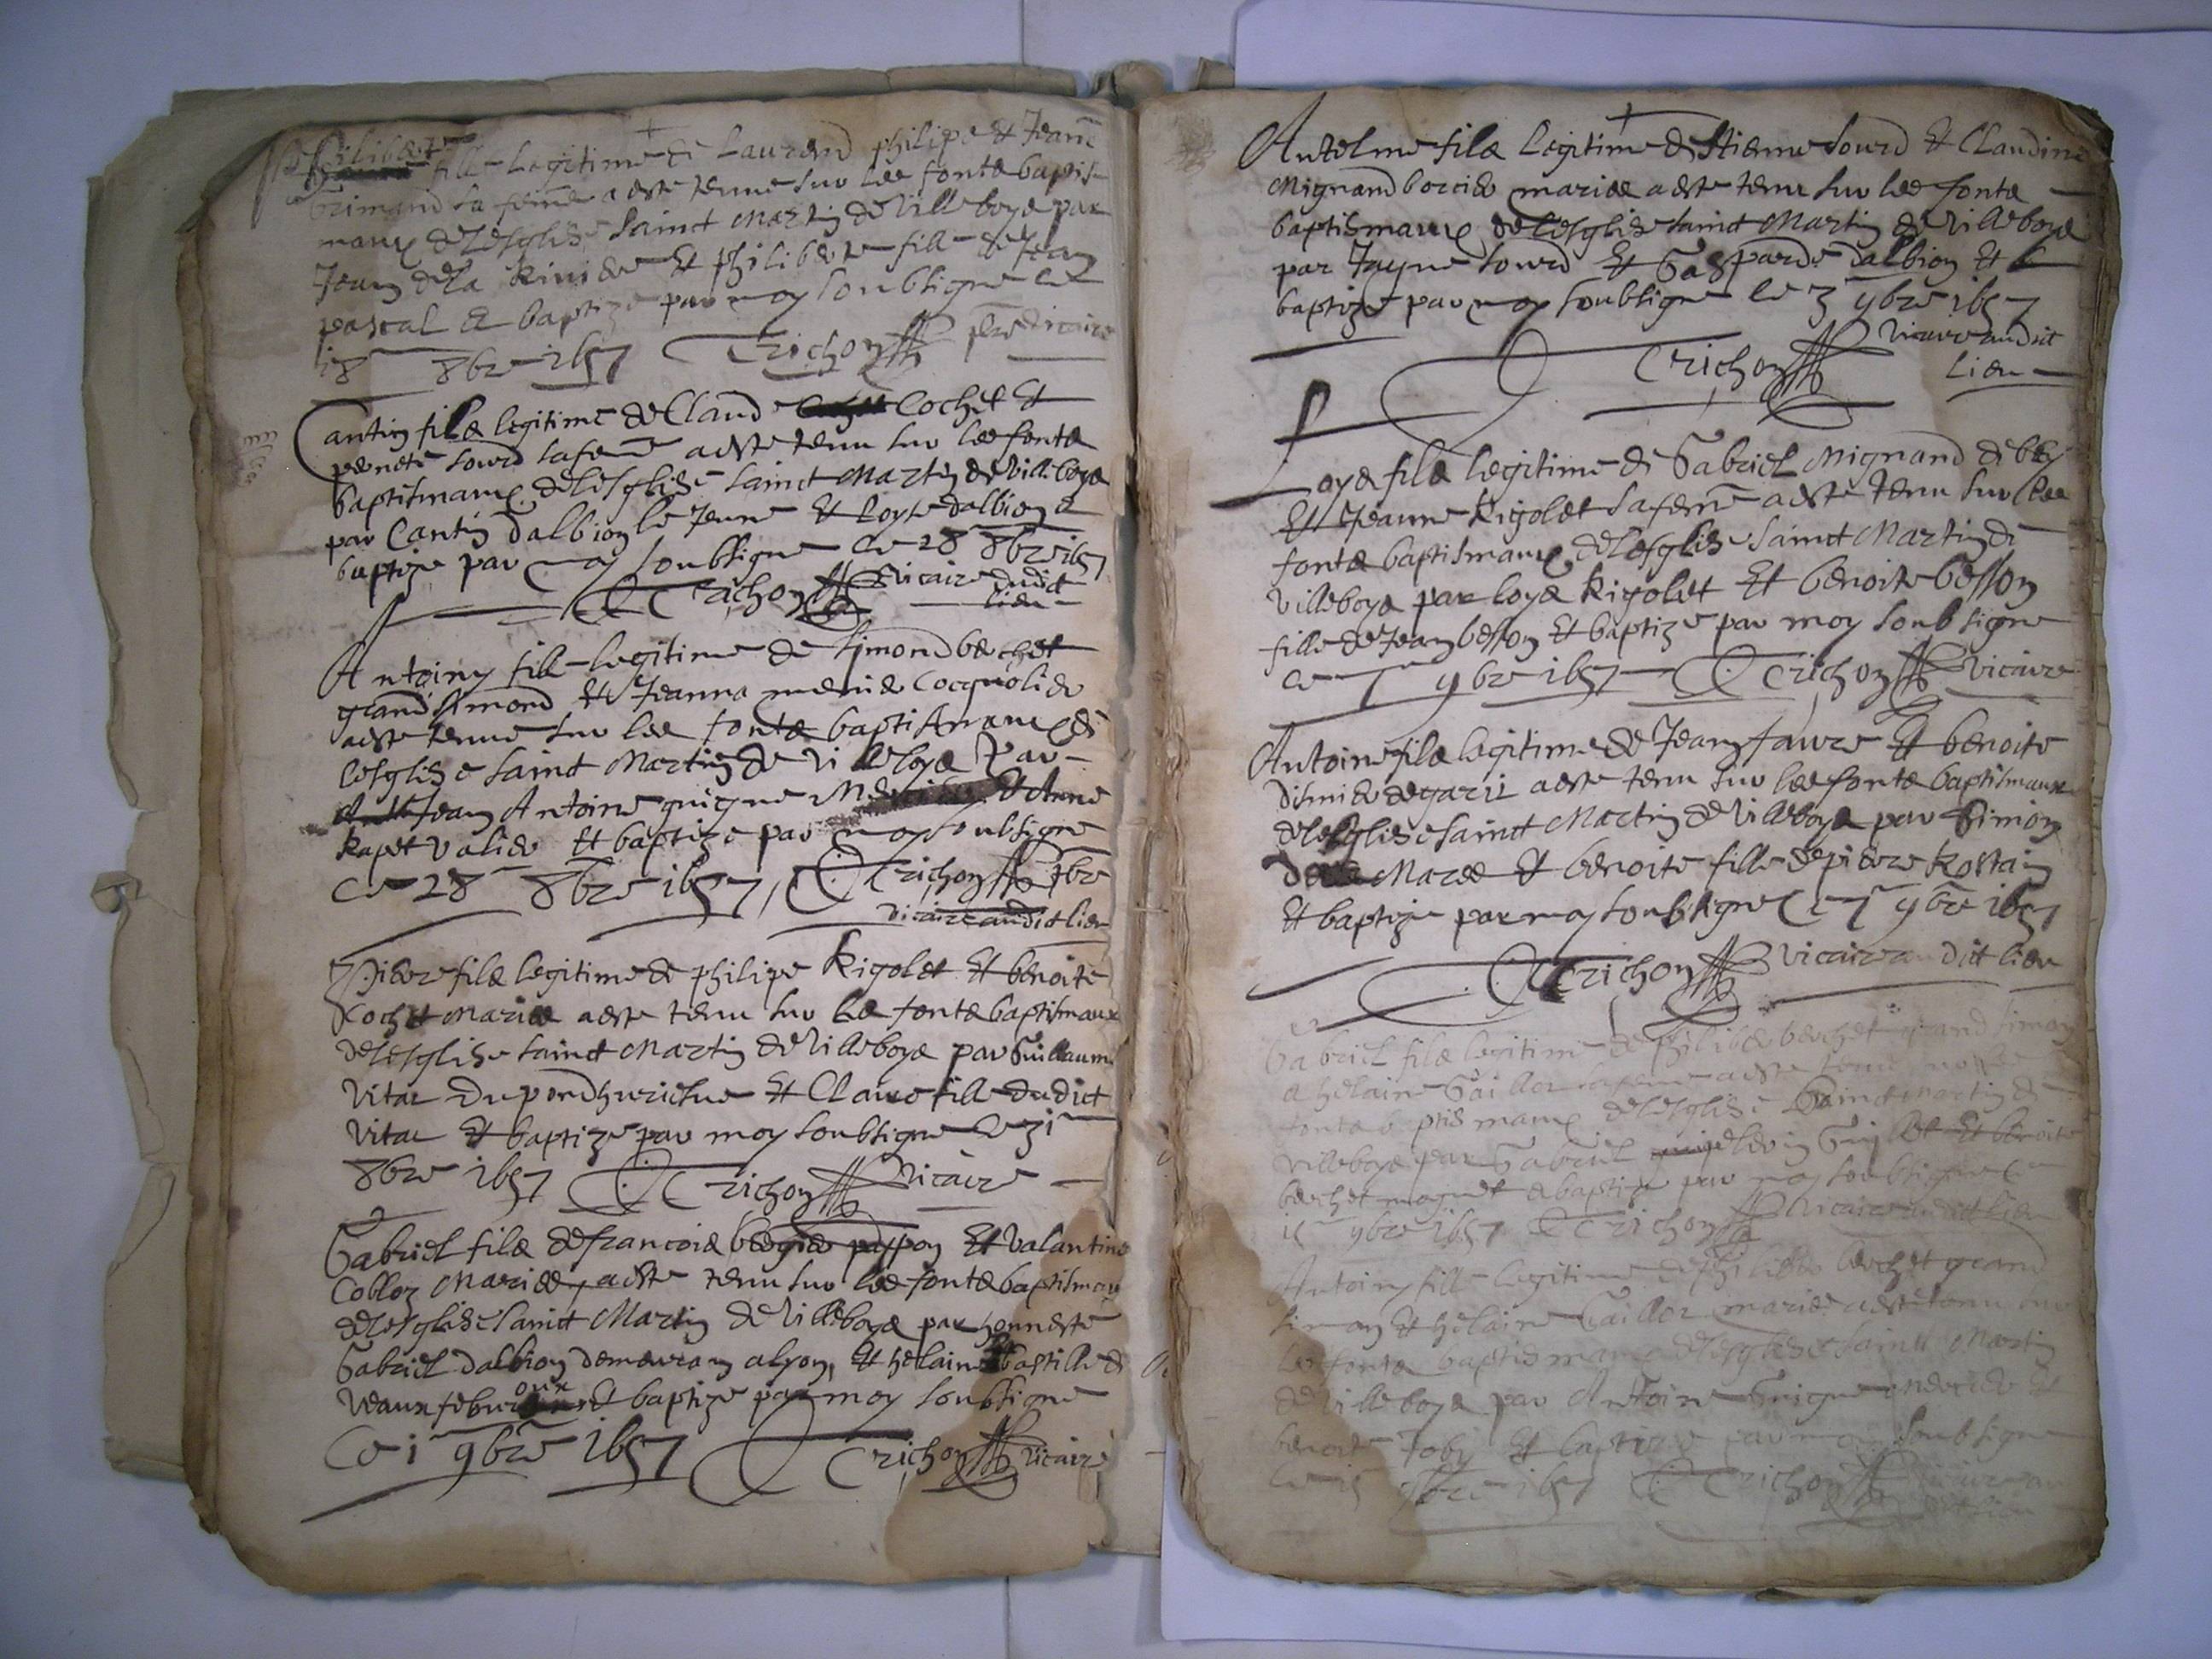 philiberte fille legitime de Laurend philipe et Jeane
Grimand sa feme a este tenue sur les fonts baptis-
maux de lesglise sainct Martin de Villeboys par
Jean de la Riviere et philiberte fille de Jean
pascal et baptize par moy soubsigne ce
18 8bre 1657 Trichon pbre vicaire
Cantin fils legitime de Claude Cochet Et
pernete sourd sa feme a este tenu sur les fonts
baptismaux de lesglise sainct Martin de Villeboys
par Cantin dalbion le Jeune Et Loyse dalbion &
baptize par moy soubsigne ce 28 8bre 1657
Trichon vicaire dudict
lieu
Antoiny fille legitime de Simond berchet
grand simond Et Jeanna Cocquolier
a este tenue sur les fonts baptismaux de
lesglise sainct Martin de Villeboys Par
Jean Antoine guigue Et Anne
Rapet valier Et baptize par moy soubsigne
Ce 28 8bre 1657 Trichon pbre
vicaire audict lieu
Piere fils legitime de philipe Rigolet Et benoite
Cochet Maries a este tenu sur les fonts baptismaux
de lesglise sainct Martin de Villeboys par Guillaume
Vitar Du pond Et Claure fille dudict
Vitar Et baptize par moy soubsigne ce 31
8bre 1657 Trichon Vicaire
Gabriel fils de francois bergier pappon Et Valantine
Cobloz Maries a este tenu sur les fonts baptismaux
de lesglise sainct Martin de Villeboys par honneste
Gabriel dalbion demeuran a lyon, Et helaine bastille de
Vaux Et baptize par moy soubsigne
Ce 1 9bre 1657 Trichon vicaire
Antelme fils Legitime de Stienne sourd Et Claudine
Mignand borcier maries a este tenu sur les fonts
baptismaux de lesglise sainct Martin de Villeboys
par Jayme sourd Et Gasparde dalbion Et
baptize par moy soubsigne le 3 9bre 1657
Trichon Vicaire audict
lieu
Loys fils legitime de Gabriel Mignand de bey
Et Jeanne Rigolet sa feme a este tenu sur les
fonts baptismaux de lesglise sainct Martin de
Villeboys par loys Rigolet Et benoite besson
fille de Jean besson Et baptize par moy soubsigne
ce 7 9bre 1657 Trichon vicaire
Antoine fils legitime de Jean faivre Et benoite
a este tenu sur les fonts baptismaux
de lesglise sainct Martin de Villeboys par Simion
Mares Et benoite fille de piere Rostain
Et baptize par moy soubsigne ce 7 9bre 1657
Trichon vicaire audict lieu
Gabriel fils legitime de philiber berchet grand simon
& helaine Gaillor sa feme a este tenu
fonts baptismaux de lesglise sainct Martin de
Villeboys par Gabriel Et benoite
berchet & baptize par moy soubsigne ce
15 9bre 1657 Trichon Vicaire audict lieu
Antoiny fille legitime de philiber berchet grand
simon Et helaine Gaillor maries a este tenu sur
les fonts baptismaux de lesglise sainct Martin
de Villeboys par Antoine Guigue mercier Et
benoite Joby Et baptize par moy soubsigne
ce 15 9bre 1657 Trichon Vicaire au